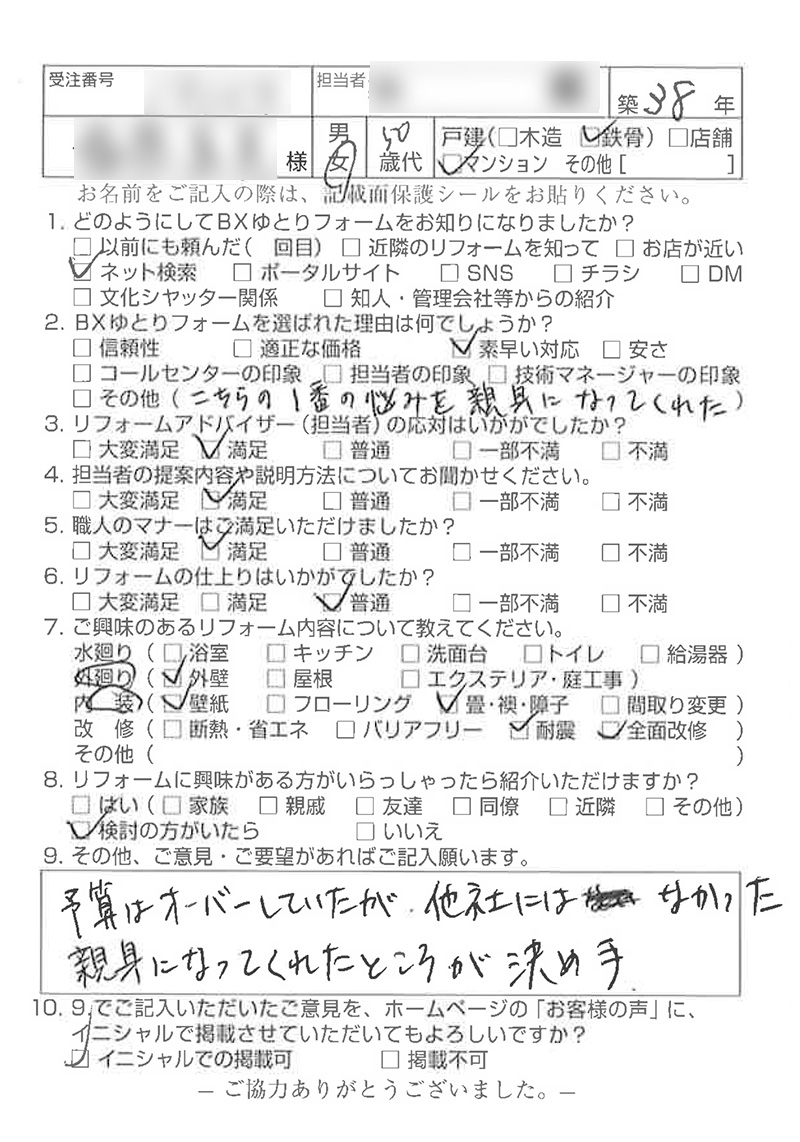 受注番号 担当者 築38年
様 男 女 50 歳代 戸建(□木造 ☑鉄骨) □店舗
☑マンション その他[ ]
お名前をご記入の際は、記載面保護シールをお貼りください。
1. どのようにしてBXゆとりフォームをお知りになりましたか?
□以前にも頼んだ( 回目) □近隣のリフォームを知って □お店が近い
☑ネット検索 □ポータルサイト □SNS □チラシ □DM
□文化シヤッター関係 □知人・管理会社等からの紹介
2. BXゆとりフォームを選ばれた理由は何でしょうか?
□信頼性 □適正な価格 ☑素早い対応 □安さ
□コールセンターの印象 □担当者の印象 □技術マネージャーの印象
□その他(こちらの1番の悩みを親身になってくれた)
3. リフォームアドバイザー(担当者)の応対はいかがでしたか?
□大変満足 ☑満足 □普通 □一部不満 □不満
4. 担当者の提案内容や説明方法についてお聞かせください。
□大変満足 ☑満足 □普通 □一部不満 □不満
5. 職人のマナーはご満足いただけましたか?
□大変満足 ☑満足 □普通 □一部不満 □不満
6. リフォームの仕上りはいかがでしたか?
□大変満足 □満足 ☑普通 □一部不満 □不満
7. ご興味のあるリフォーム内容について教えてください。
水廻り(□浴室 □キッチン □洗面台 □トイレ □給湯器)
外廻り(☑外壁 □屋根 □エクステリア・庭工事)
内 装(☑壁紙 □フローリング ☑畳・襖・障子 □間取り変更)
改 修(□断熱・省エネ □バリアフリー ☑耐震 ☑全面改修)
その他( )
8. リフォームに興味がある方がいらっしゃったら紹介いただけますか?
□はい(□家族 □親戚 □友達 □同僚 □近隣 □その他)
☑検討の方がいたら □いいえ
9. その他、ご意見・ご要望があればご記入願います。
予算はオーバーしていたが、他社には なかった
親身になってくれたところが決め手
10. 9.でご記入いただいたご意見を、ホームページの「お客様の声」に、
イニシャルで掲載させていただいてもよろしいですか?
☑イニシャルでの掲載可 □掲載不可
― ご協力ありがとうございました。―